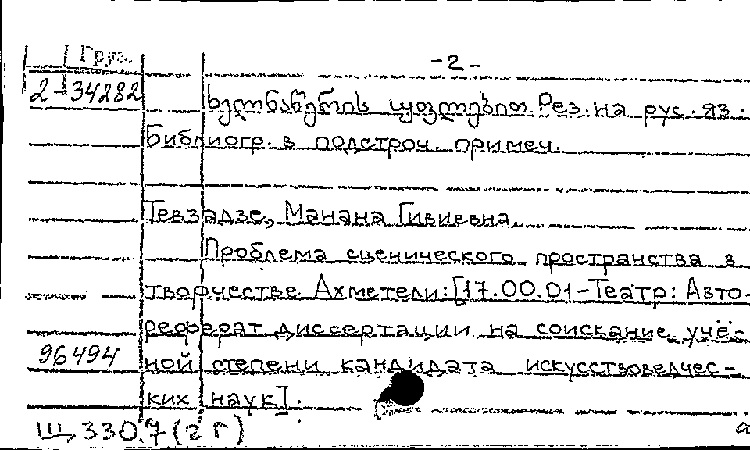 Груз.
-2-
2-34282
ხელნაწერის უფლებით. Рез. на рус. яз.
Библиогр. в подстроч. примеч.
Тевзадзе, Манана Гивиевна.
Проблема сценического пространства в
творчестве Ахметели: [17.00.01-Театр: Авто-
реферат диссертации на соискание учё-
96494 ной степени кандидата искусствоведчес-
ких наук].
Щ330.7(2Г)